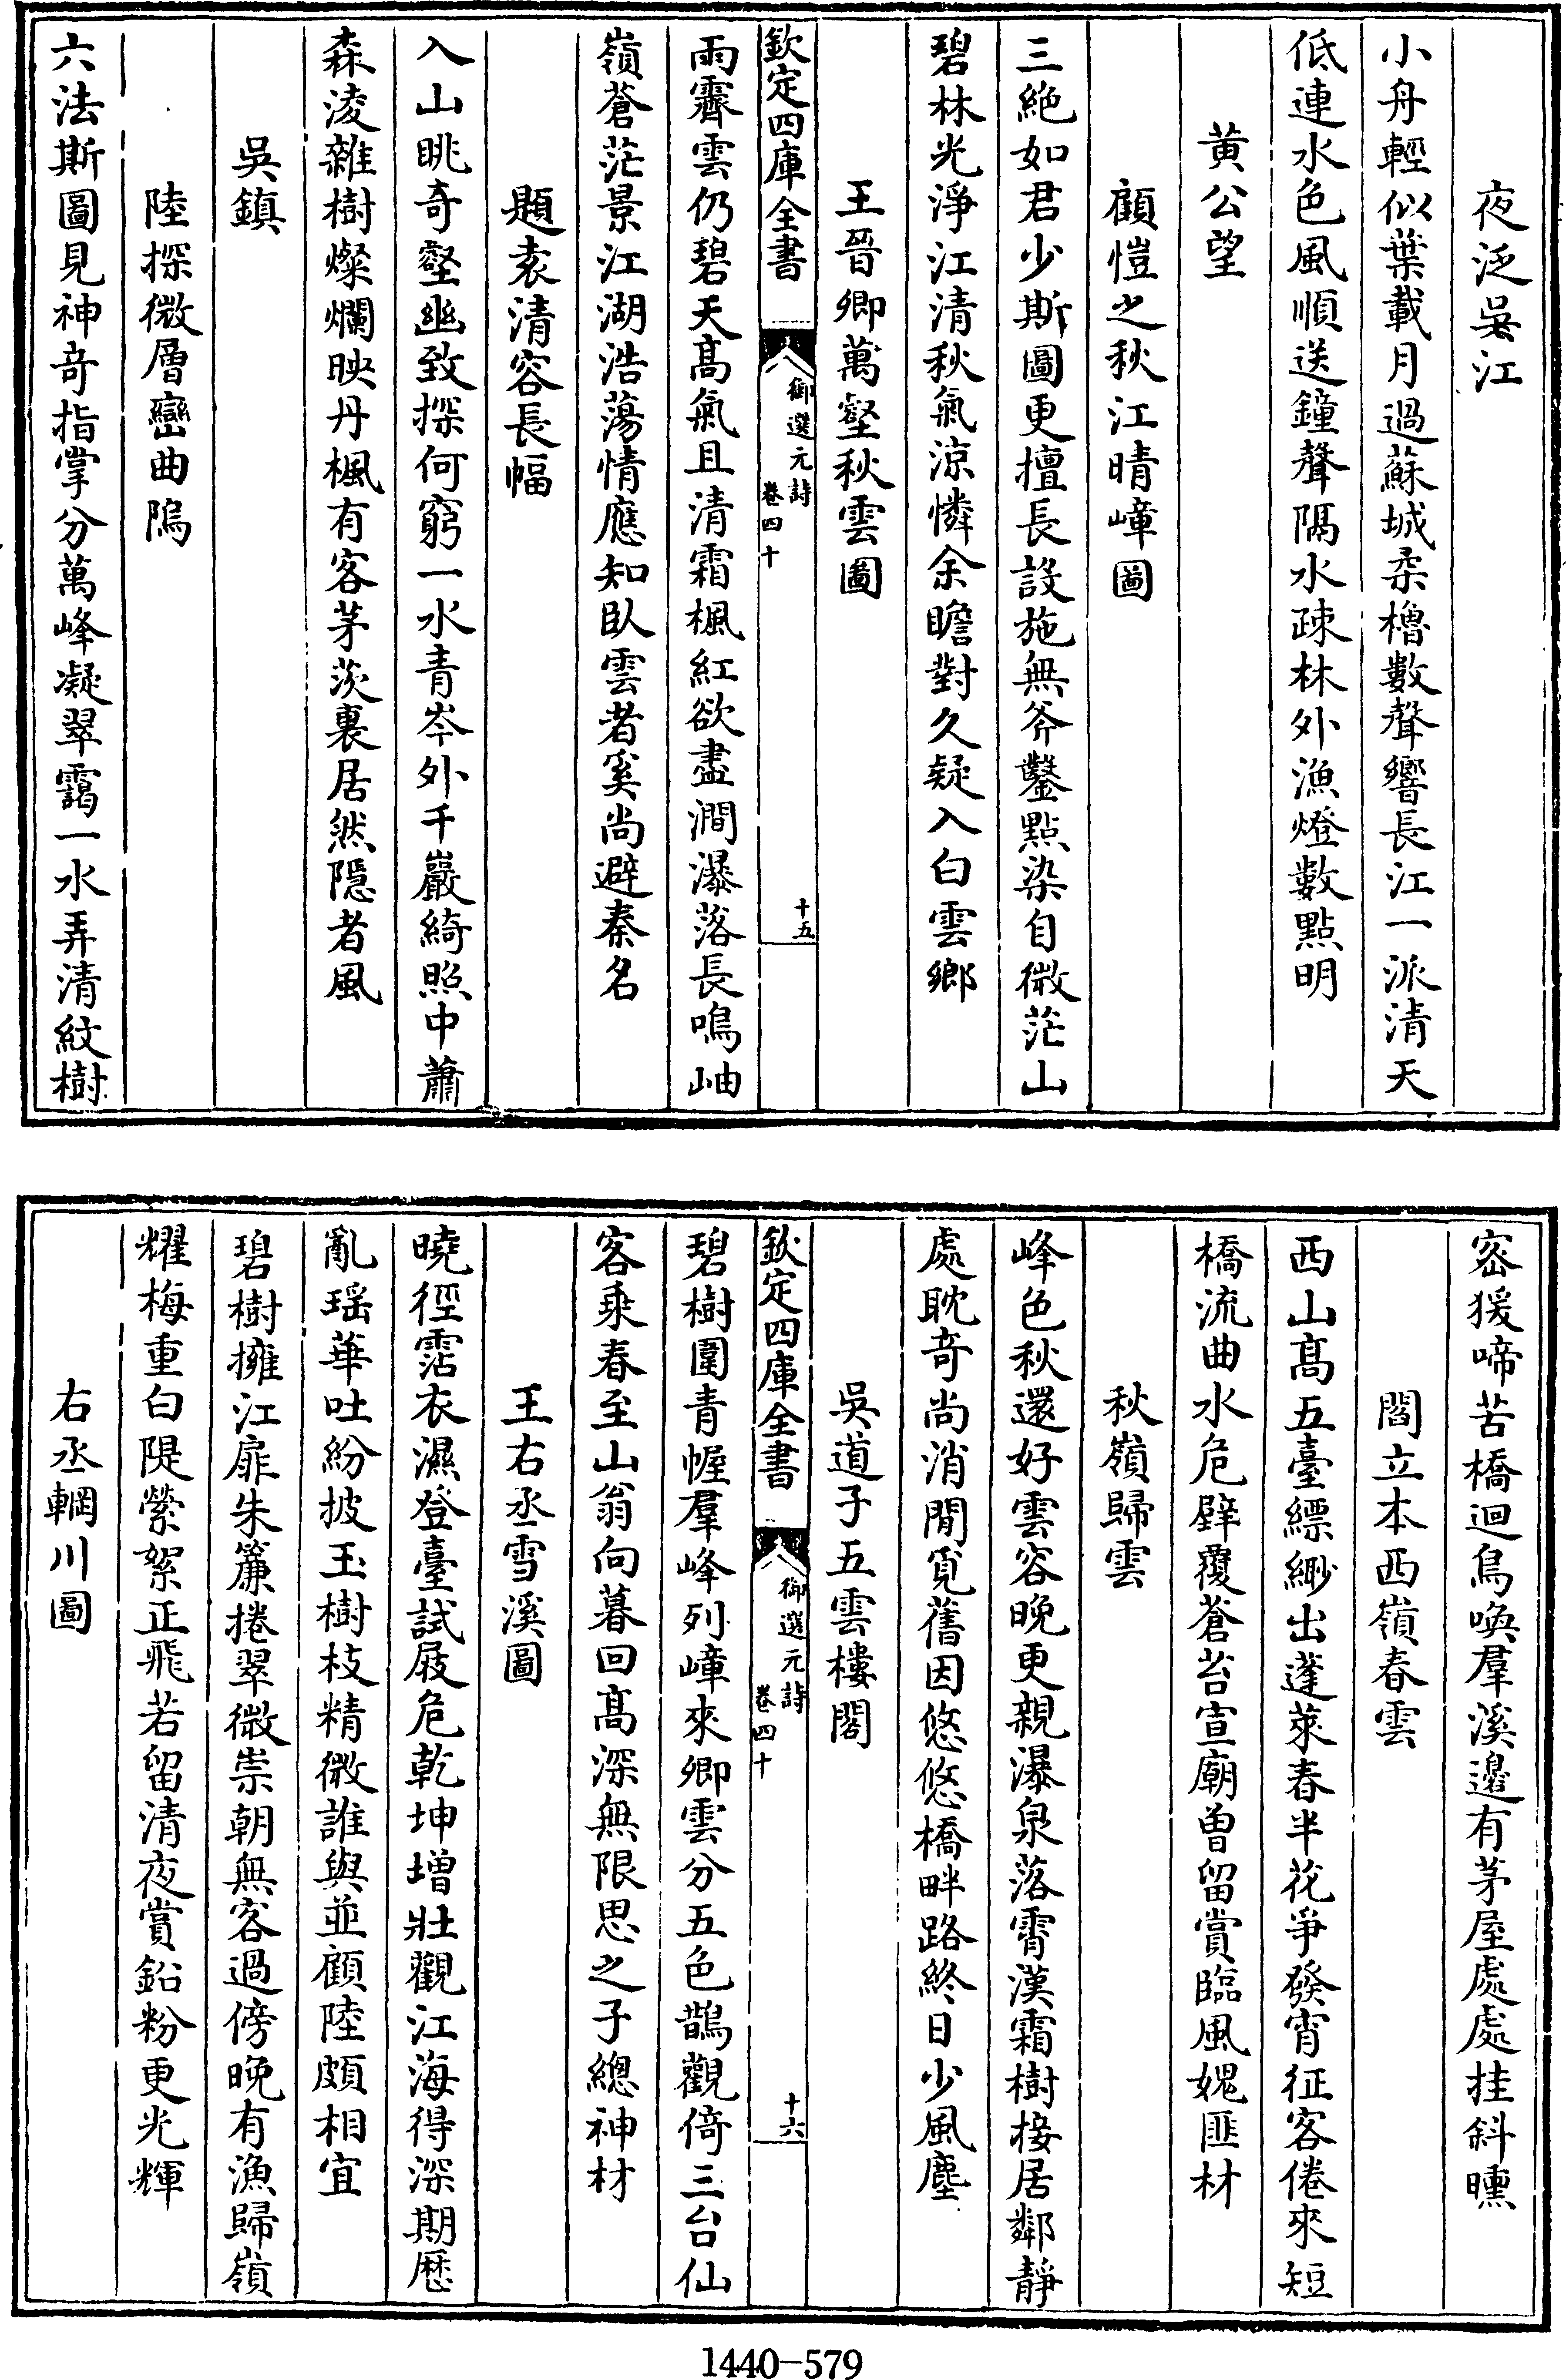 夜泛吳江
小舟輕似葉載月過蘇城柔櫓數聲響長江一派清天
低連水色風順送鐘聲隔水疎林外漁燈數點明
黄公望
顧愷之秋江晴嶂圖
三絶如君少斯圖更擅長設施無斧鑿點染自微茫山
碧林光淨江清秋氣涼憐余瞻對久疑入白雲鄉
王晉卿萬壑秋雲圖
欽定四庫全書
御選元詩
卷四十
十五
雨霽雲仍碧天髙氣且清霜楓紅欲盡澗瀑落長鳴岫
嶺蒼茫景江湖浩蕩情應知臥雲者奚尚避秦名
題袁清容長幅
入山眺奇壑幽致探何窮一水青岑外千巖綺照中蕭
森淩雜樹燦爛映丹楓有客茅茨裏居然隠者風
吳鎮
陸探微層巒曲隖
六法斯圖見神竒指掌分萬峰凝翠靄一水弄清紋樹
宻猨啼苦橋迴鳥喚羣溪邊有茅屋處處挂斜曛
閻立本西嶺春雲
西山髙五臺縹緲出蓬萊春半花爭發宵征客倦來短
橋流曲水危壁覆蒼苔宣廟曽留賞臨風媿匪材
秋嶺歸雲
峰色秋還好雲容晚更親瀑泉落霄漢霜樹接居鄰靜
處眈竒尚消閒覓舊因悠悠橋畔路終日少風塵
吳道子五雲樓閣
欽定四庫全書
御選元詩
卷四十
十六
碧樹圍青幄羣峰列嶂來卿雲分五色鵲觀倚三台仙
客乘春至山翁向暮回髙深無限思之子總神材
王右丞雪溪圖
曉徑霑衣濕登臺試屐危乾坤增壯觀江海得深期歴
亂瑶華吐紛披玉樹枝精微誰與並顧陸頗相宜
碧樹擁江扉朱簾捲翠微崇朝無客過傍晚有漁歸嶺
耀梅重白隄縈絮正飛若留清夜賞鉛粉更光輝
右丞輞川圖
1440-579